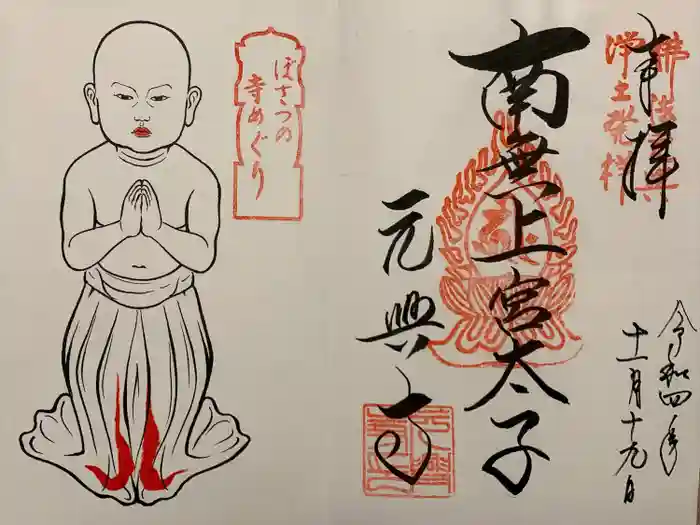 奉拝
佛法元興
浄土発祥
南無上宮太子
元興寺
令和四年
十一月十九日
ぼさつの
寺めぐり